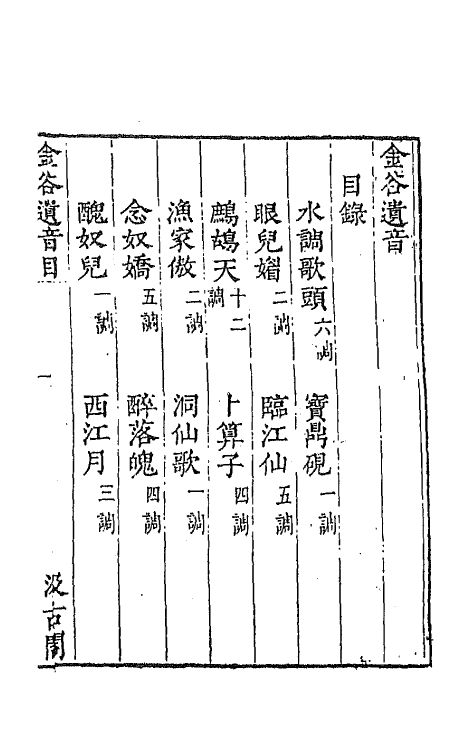 金谷遺音
目録
水調歌頭 六調 寶鼎硯 一調
眼兒媚 二調 臨江仙 五調
鷓鴣天 十二調 卜算子 四調
漁家傲 二調 洞仙歌 一調
念奴嬌 五調 醉落魄 四調
醜奴兒 一調 西江月 三調
金谷遺音目 一 汲古閣